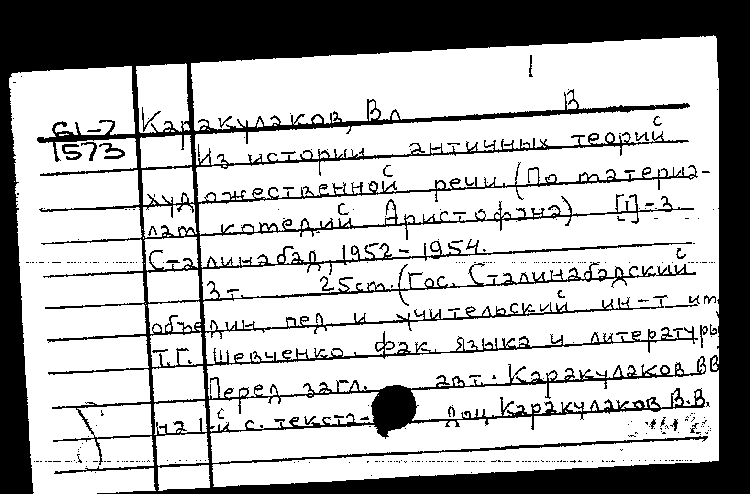 1
61-7 Каракулаков, Вл В
1573 Из истории античных теорий
художественной речи. (По материа-
лам комедий Аристофана) [1]-3.
Сталинабад, 1952-1954.
3 т. 25 cm. (Гос. Сталинабадский
объедин. пед и учительский ин-т им.
Т.Г. Шевченко. фак. языка и литературы
Перед загл. авт. Каракулаков ВВ
на 1-й с. текста- доц. Каракулаков В.В.